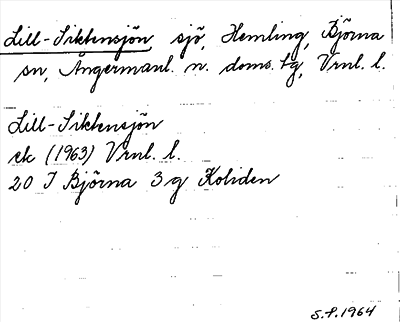 Lill-Siktensjön, sjö, Hemling, Björna
sn, Ångermanl. n. doms. tg, Vrnl. l.
Lill-Siktensjön
ek (1963) Vrnl. l.
20 I Björna 3 g Koliden
S.P. 1964